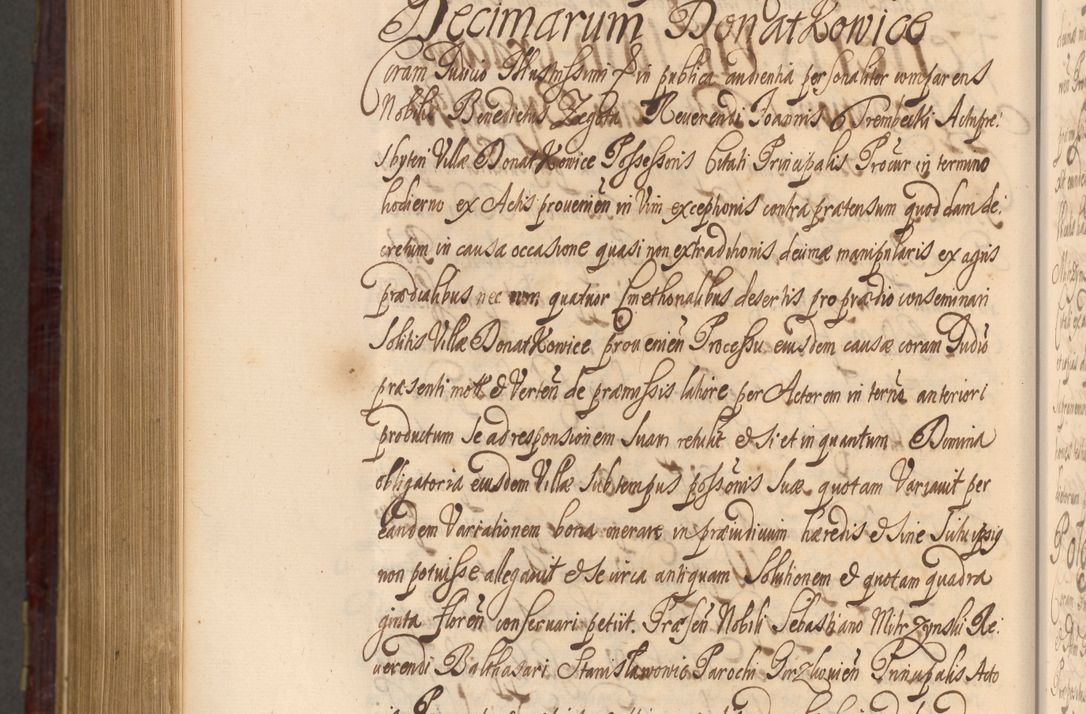 Decimarum Donatkowice
Coram Judicio Illustrissimi & in publica audientia personaliter comparens
Nobilis Benedictus Zegota Reuerendi Joannis Trembecki Actu pre:
sbyteri Villæ Donatkowice Possessoris Citati Principalis Procur in termino
hodierno ex Actis prouenien in Vim exceptionis contra prætensum quoddam de:
cretum in causa occasione quasi non extraditionis decimæ manipularis ex agris
prædialibus nec non quatuor Cmethonalibus desertis pro prædio conseminari
Solitis Villæ Donatkowice prouenien Processu eiusdem causæ coram Judio
præsenti mott & Verten de præmissis latiore per Actorem in termo anteriori
productum se ad responsionem suam retulit & si et in quantum Domina
obligatoria eiusdem Villæ sub tempus possonis suæ quotam Variauit per
eandem Variationem bona onerare in præiudicium hæredis & sine scitu ipsig
non potuisse allegauit & se circa antiquam Solutionem & quotam quadra
ginta floren conseruari petiit. Præsen Nobili Sebastiano Mitrzynski Re:
uerendi Balthasari Stanisławowic Parochi Principalis Acto